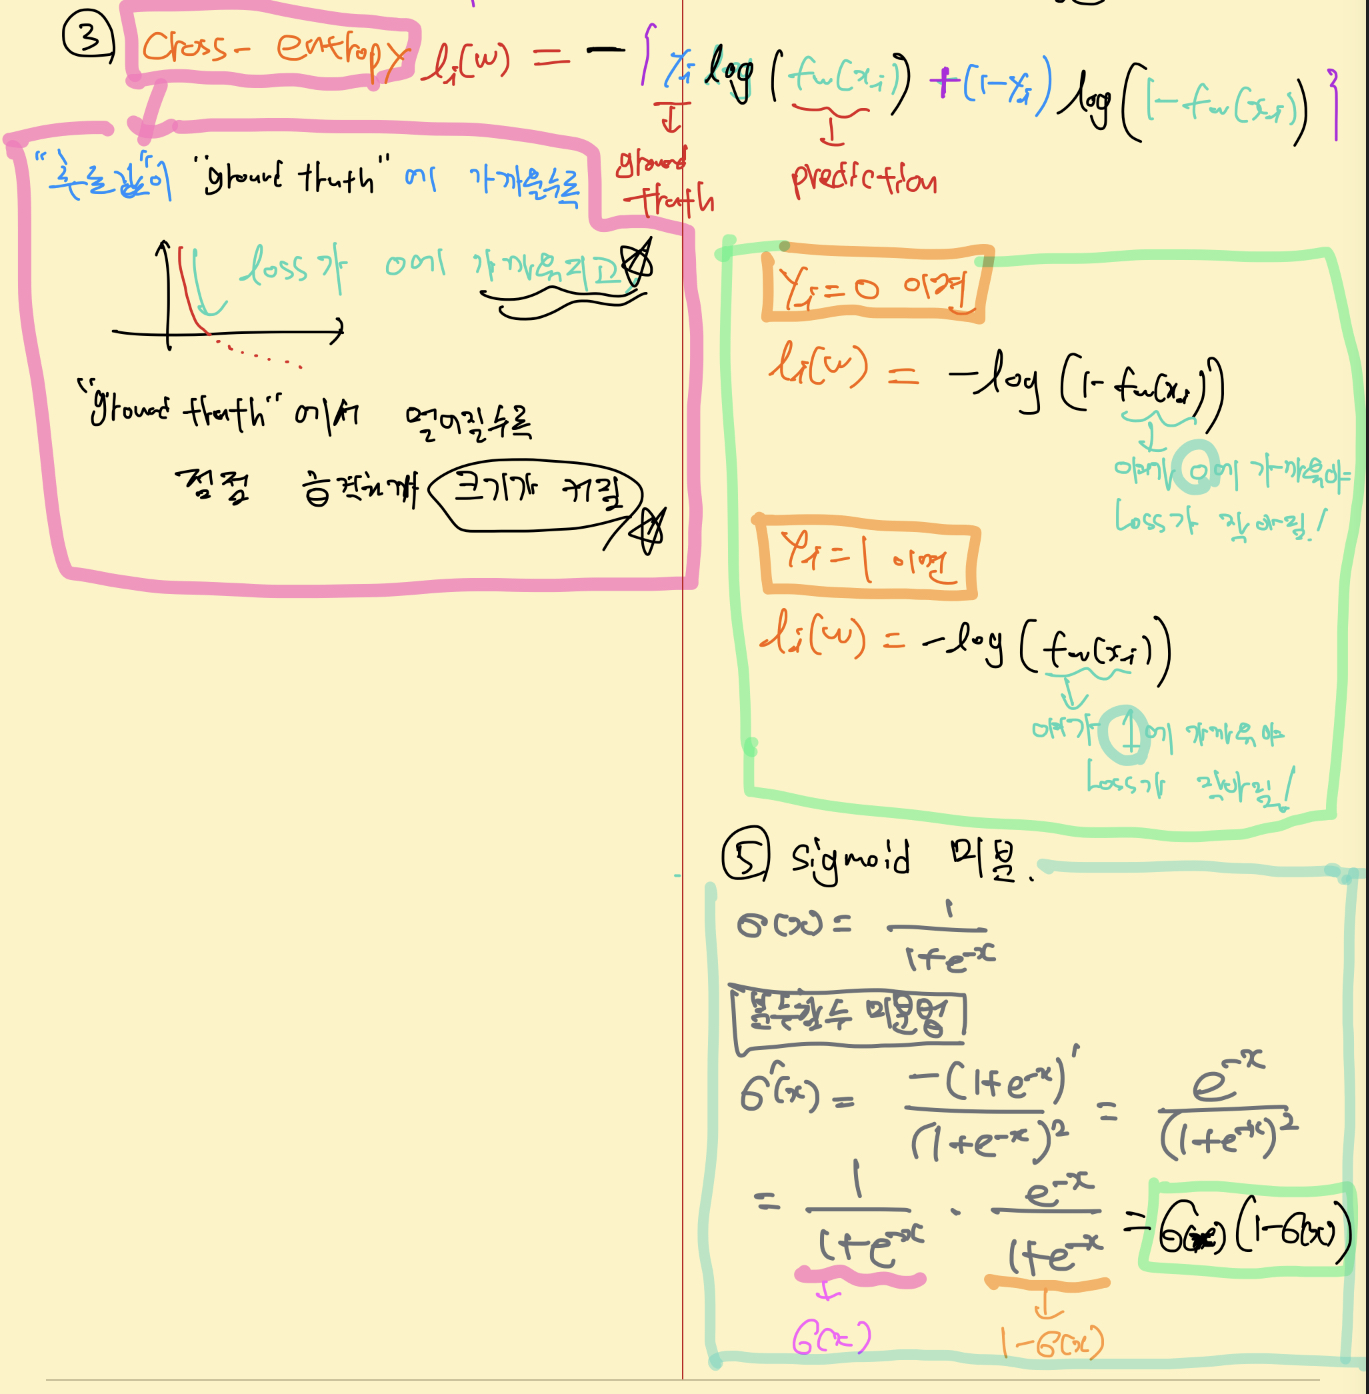 ③ Cross-entropy li(w) = -{yi log(fw(xi)) + (1-yi) log(1-fw(xi))}
ground truth
prediction
"추론값"이 "ground truth"에 가까울수록
loss가 0에 가까워지고
"ground truth"에서 멀어질수록
점점 크기가 커짐
Yi=0 이면
li(w) = -log(1-fw(xi))
여기가 0에 가까워야
Loss가 작아짐!
Yi=1 이면
li(w) = -log(fw(xi))
여기가 1에 가까워야
Loss가 작아짐!
⑤ sigmoid 미분.
σ(x) = 1/(1+e^-x)
분수함수 미분법
σ'(x) = -(1+e^-x)'/(1+e^-x)^2 = e^-x/(1+e^-x)^2
= 1/(1+e^-x) · e^-x/(1+e^-x) = σ(x)(1-σ(x))
σ(x) 1-σ(x)